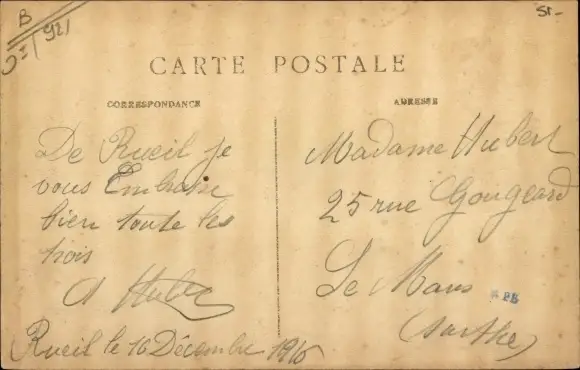 B
921
SI-
CARTE POSTALE
CORRESPONDANCE
ADRESSE
De Rueil je
vous Embrasse
bien toute les
trois
A Huber
Rueil le 16 Décembre 1916
Madame Hubert
25 rue Gougeard
Le Mans
(Sarthe)